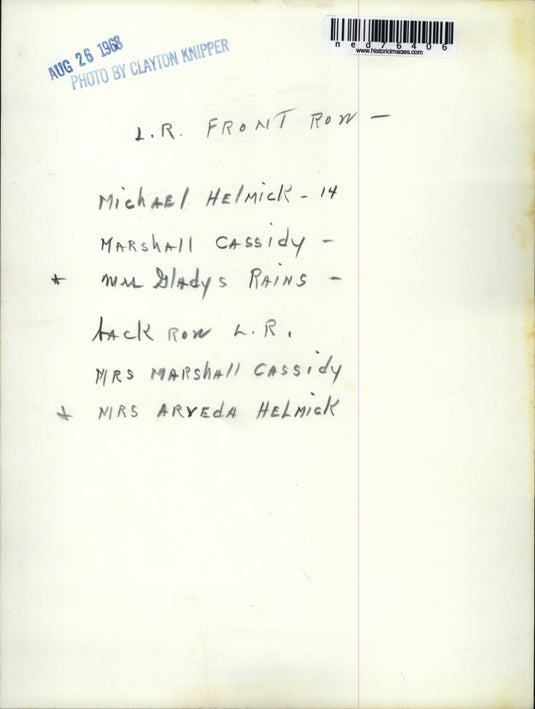 AUG 26 1968
PHOTO BY CLAYTON KNIPPER
ned76406
www.historicimages.com
L.R. FRONT ROW –
MichAEl HElMick - 14
MARshAll CAssidy –
* Mrs GlAdys RAiNs –
bACK ROW L.R.
MRS MARshAll CAssidy
* MRS ARVEdA HELMicK